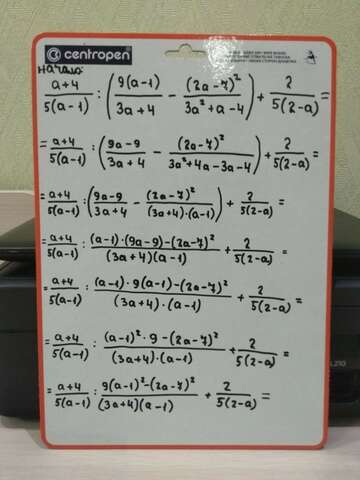 centropen
начало:
a+4/5(a-1) : (9(a-1)/3a+4 - (2a-7)²/3a²+a-4) + 2/5(2-a) =
= a+4/5(a-1) : (9a-9/3a+4 - (2a-7)²/3a²+4a-3a-4) + 2/5(2-a) =
= a+4/5(a-1) : (9a-9/3a+4 - (2a-7)²/(3a+4)·(a-1)) + 2/5(2-a) =
= a+4/5(a-1) : (a-1)·(9a-9)-(2a-7)²/(3a+4)(a-1) + 2/5(2-a) =
= a+4/5(a-1) : (a-1)·9(a-1)-(2a-7)²/(3a+4)·(a-1) + 2/5(2-a) =
= a+4/5(a-1) : (a-1)²·9-(2a-7)²/(3a+4)·(a-1) + 2/5(2-a) =
= a+4/5(a-1) : 9(a-1)²-(2a-7)²/(3a+4)(a-1) + 2/5(2-a) =